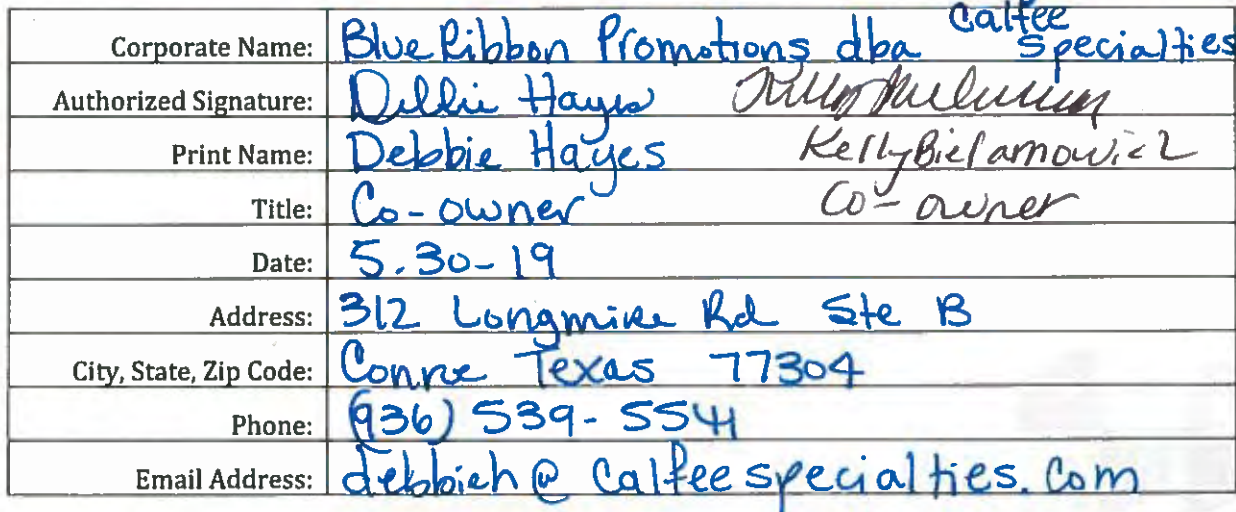 Corporate Name: Blue Ribbon Promotions dba Calfee Specialties
Authorized Signature: Debbie Hayes
Print Name: Debbie Hayes Kelly Bielamowicz
Title: Co-owner Co-owner
Date: 5.30-19
Address: 312 Longmire Rd Ste B
City, State, Zip Code: Conroe Texas 77304
Phone: (936) 539-5541
Email Address: debbieh@calfeespecialties.com